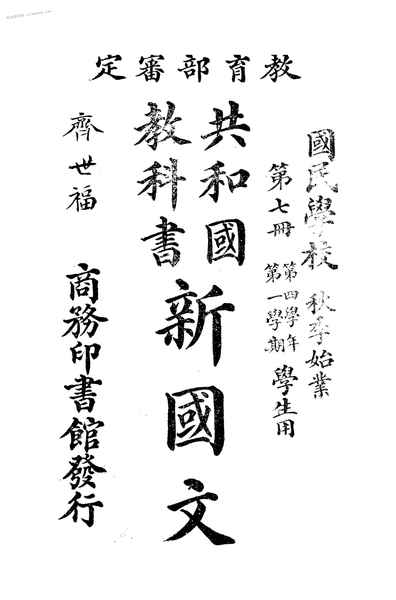 教育部審定
國民學校 秋季始業
第七冊 第四學年 第一學期 學生用
共和國
教科書
新國文
齊世福
商務印書館發行